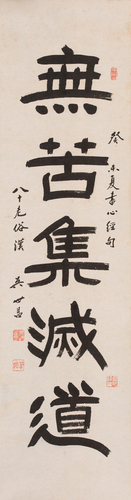 無苦集滅道
癸未夏書心經句
八十老俗漢
吳世昌